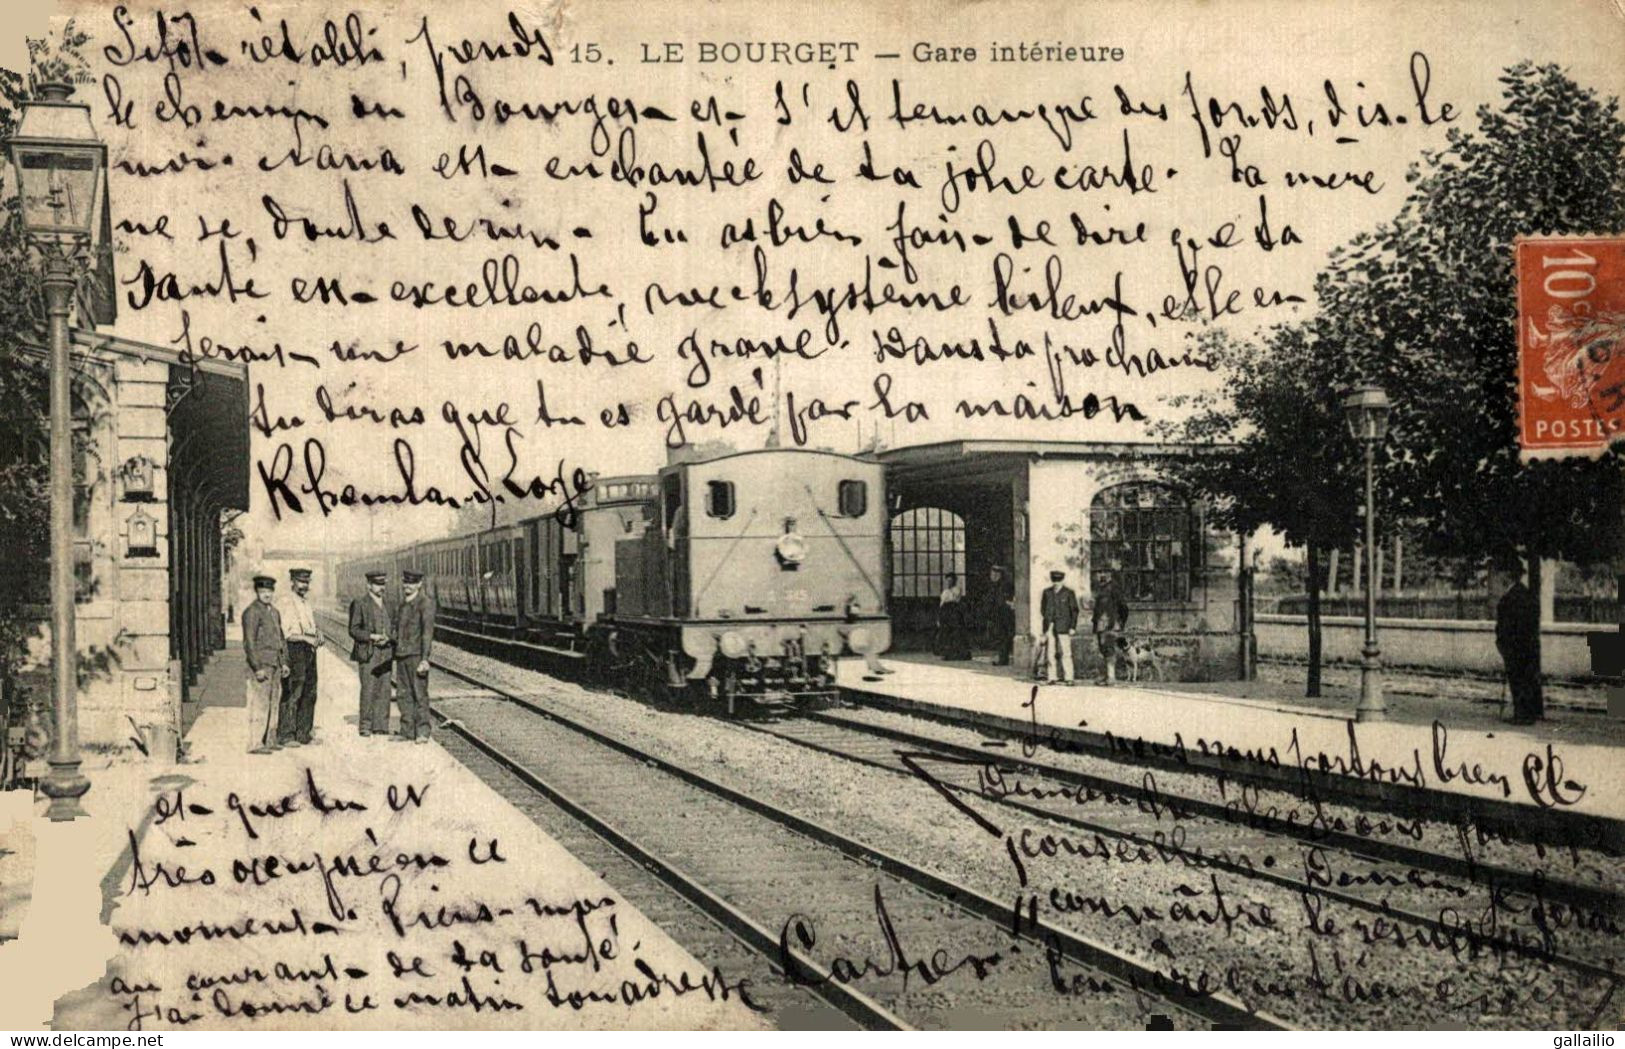 15. LE BOURGET — Gare intérieure
Sitôt rétabli, prends
le chemin du Bourget et s'il te manque des fonds, dis-le
moi. Nana est enchantée de ta jolie carte. Ta mère
ne se doute de rien. Tu as bien fait de dire que ta
santé est excellente, avec le système bileux, elle en
ferait une maladie grave. Dans ta prochaine
tu diras que tu es gardé par la maison
10c
POSTES
et que tu es
très occupé en ce
moment. Tiens-moi
au courant de ta santé.
J'ai donné ce matin ton adresse
Cartier
Ici nous nous portons bien et
Dimanche élections pour
conseillers. Demain je ferai
connaître le résultat
Ton père
315
© www.delcampe.net
gallailio